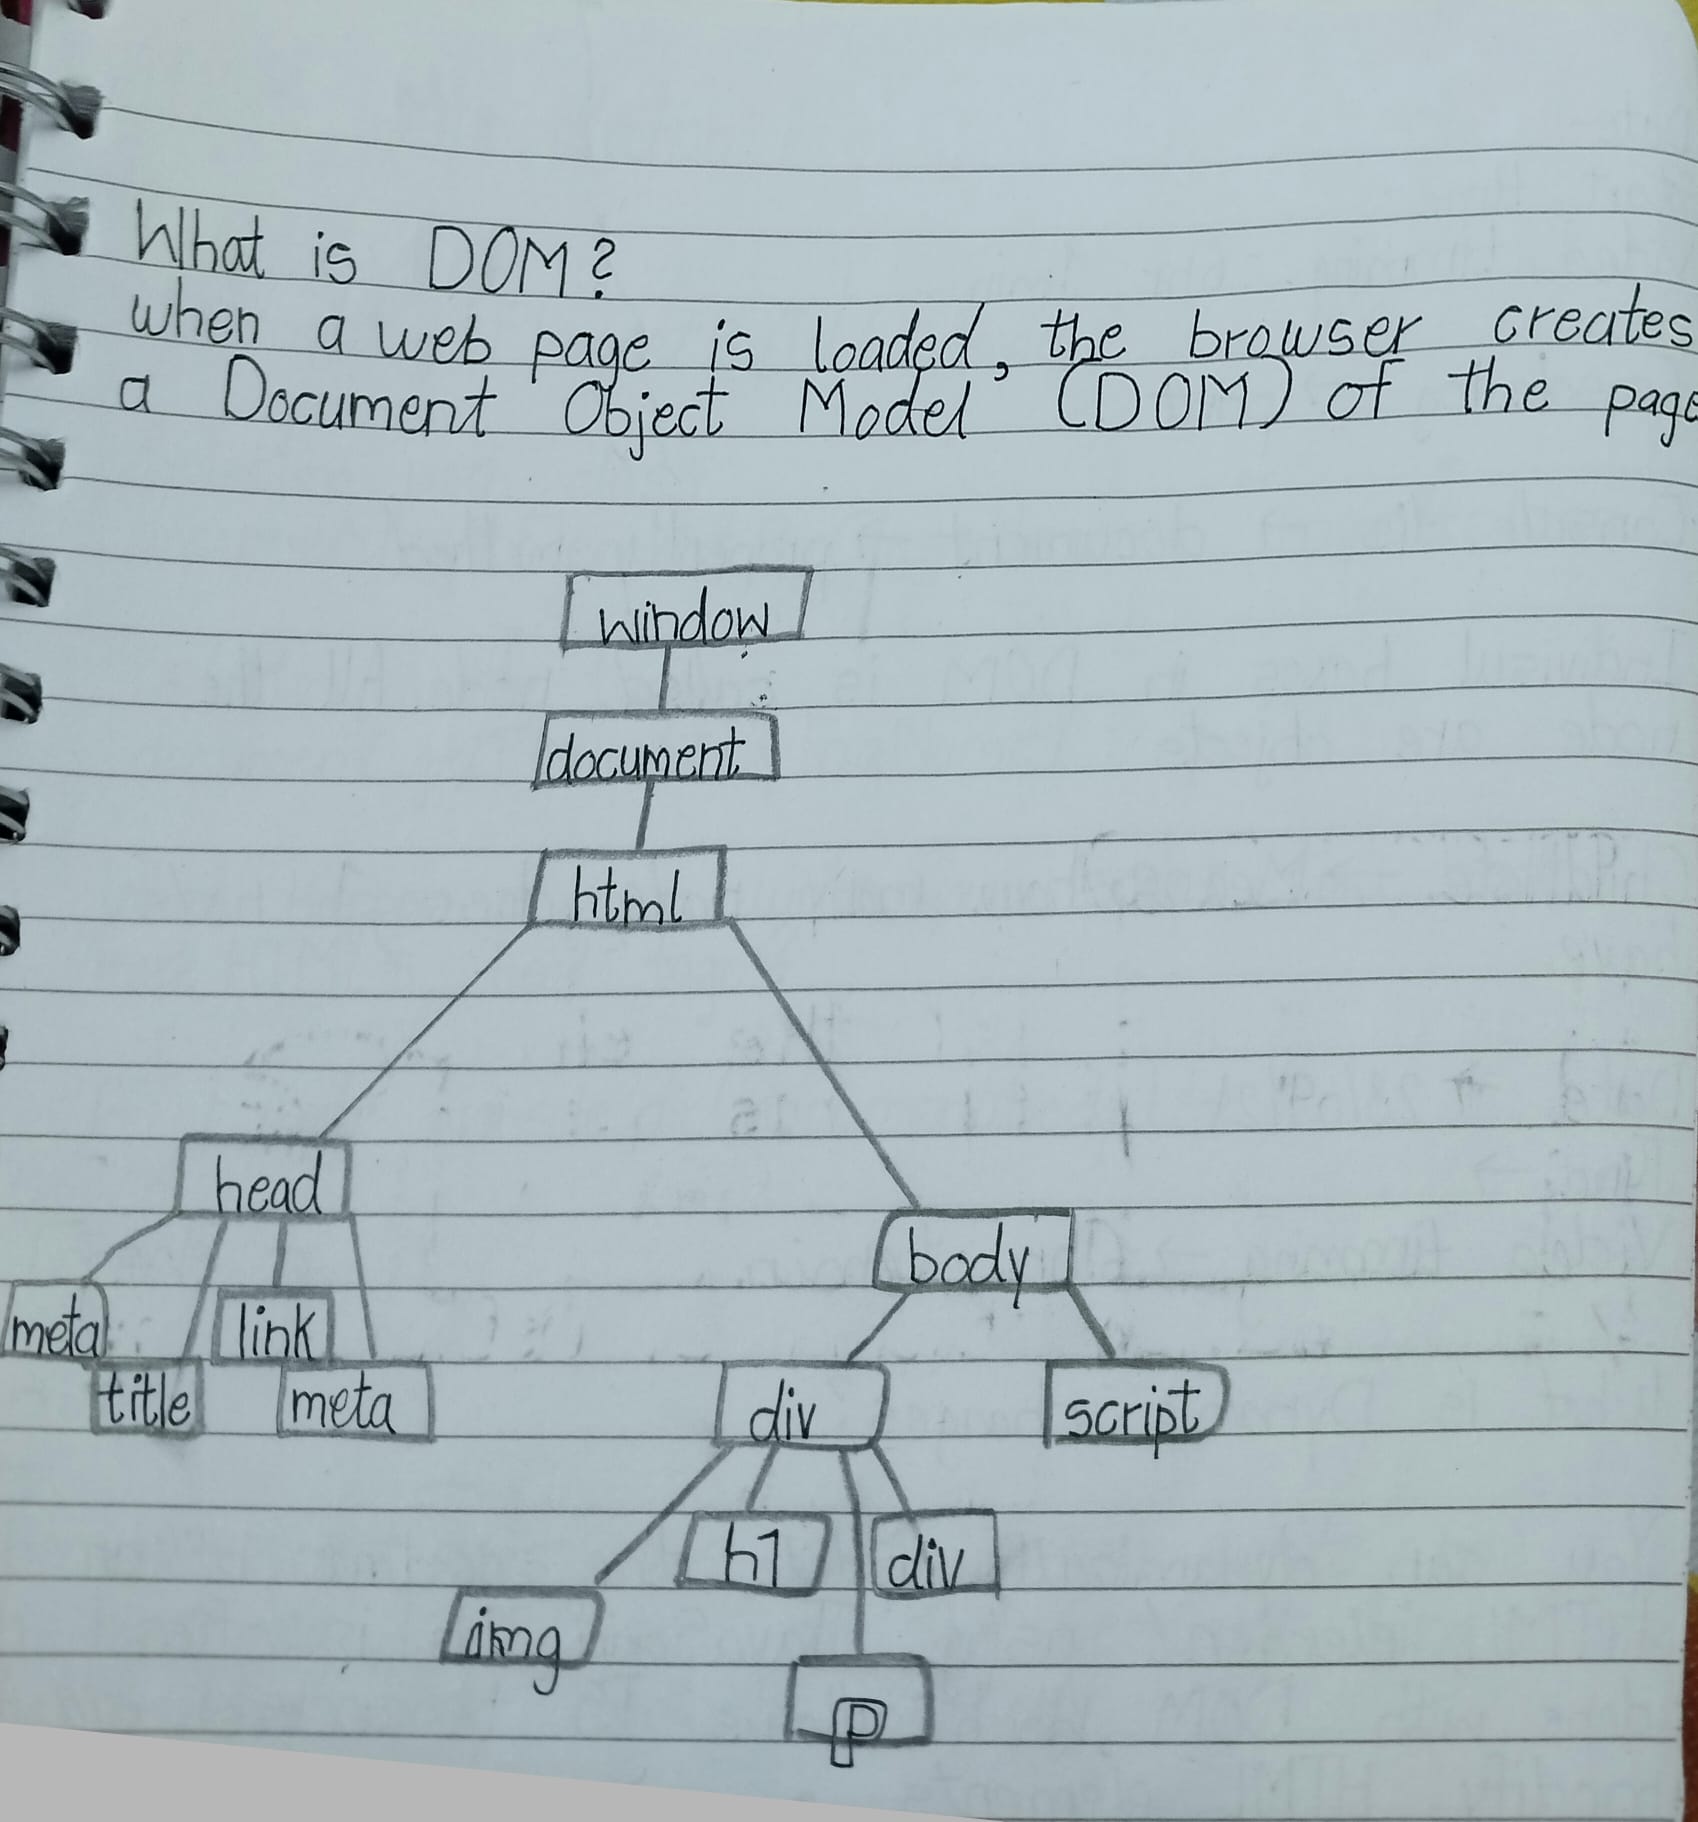 What is DOM?
when a web page is loaded, the browser creates
a Document Object Model (DOM) of the page
window
document
html
head
body
meta
link
title
meta
div
script
h1
div
img
p